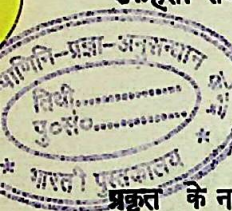 पाणिनि-प्रज्ञा-अनुसन्धान
तिथी..................
पु०सं०..................
भारती पुस्तकालय
प्रकृत के न